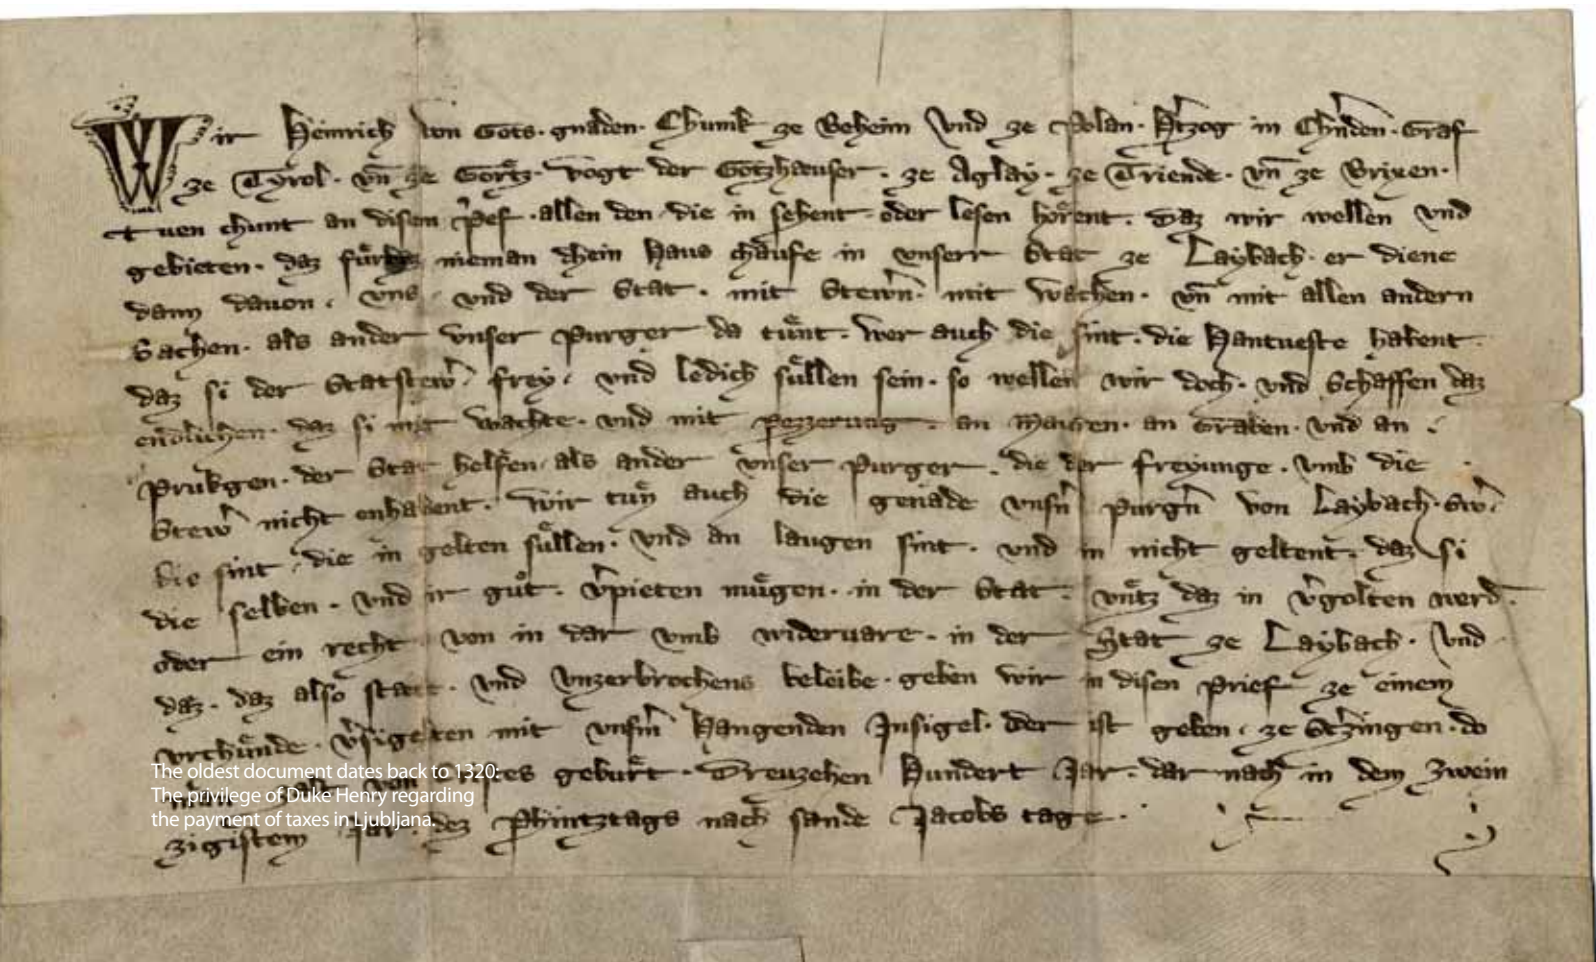 Wir Heinrich von Gots. gnaden. Chunik ze Beheim Vnd ze Polan. Hꝛ̄zog in Chn̄den. Graf
ze Tyrol. vn̄ ze Goͤrtz. Vogt der Gotzhauser. ze Aglay. ze Triende. vn̄ ze Brixen.
Tuen chunt an disem p̄ef. allen den. die in sehent. oder lesen hoͤrent. Daz wir wellen vnd
gebieten. daz nieman dhein Haus chaufe in vnserr Stat ze Laybach. er diene
dann dauon. vns. vnd der Stat. mit Stewr̄n. mit wachen. vn̄ mit allen andern
Sachen. als ander vnser Purger da tuͤnt. Wer auch die sint. die Hantueste habent.
daz si der Statstewr̄. frey. vnd ledich suͤllen sein. so wellen wir doch. vnd Schaffen daz
endlichen. daz si mit wachte. vnd mit pezzerung. an Mauren. an Graben. vnd an
Prukgen. der Stat helfen. als ander vnser Purger. die der freyunge. vmb die
Stewr̄ nicht enhabent. Wir tuͤn auch die genade vnsn̄ purgn̄ von Laybach. Sw̄
die sint. die in gelten suͤllen. Vnd an laugen sint. vnd in nicht geltent. daz si
die selben. Vnd ir guͦt. v̄pieten muͤgen. in der Stat. vntz daz in v̄golten werd.
oder ein recht von in dar vmb wideruare. in der Stat ze Laybach. Vnd
daz. daz also stat. vnd Vnzerbrochens beleibe. geben wir in disen Prief ze einem
vrchuͤnde. v̄sigelten mit vnsm̄ Hangenden Insigel. Der ist geben. ze St̄zingen. do
von geburt. Dreuzehen Hundert Jar. dar nach in dem Zwein
zigistem Jar. dez Phintztags nach sande Jacobs tage.
The oldest document dates back to 1320:
The privilege of Duke Henry regarding
the payment of taxes in Ljubljana.